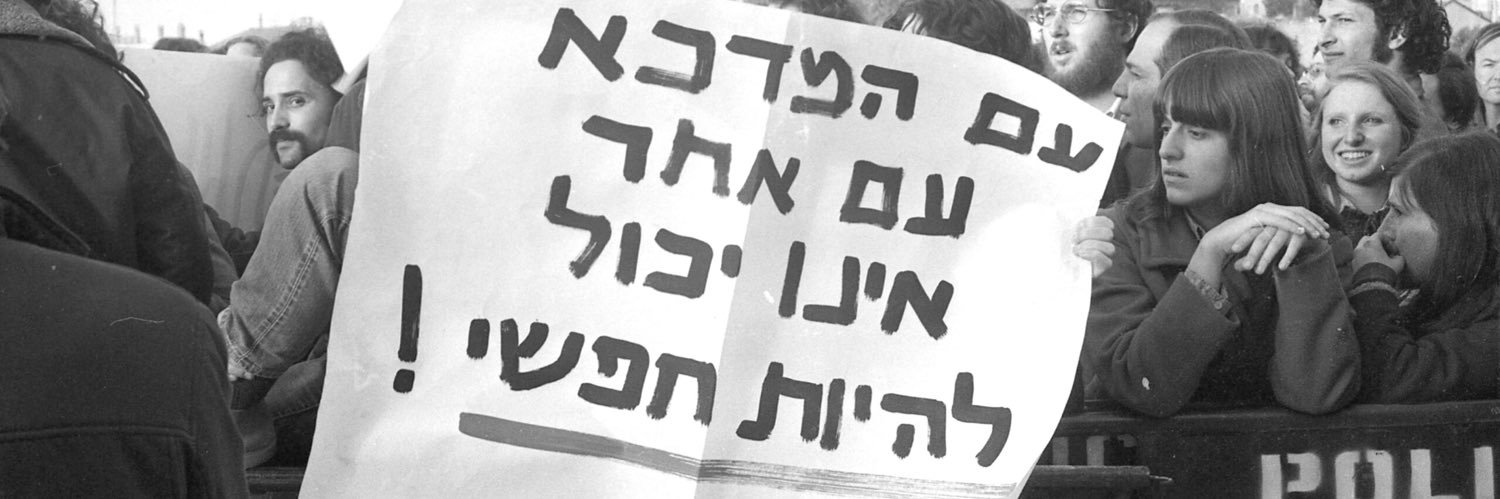 עם המדכא
עם אחר
אינו יכול
להיות חפשי!
POLI